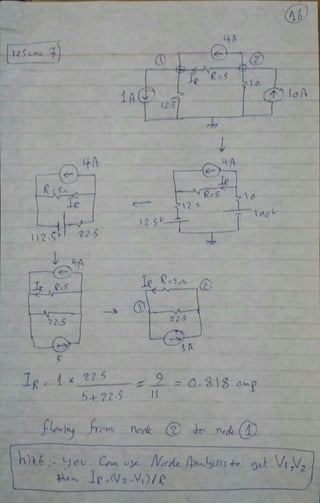 16
resume 7
4A
① ②
I_R R=5
1A 12.5 10 10A
4A
R=5Ω
I_R
112.5 22.5
4A
I_R
R=5
12.5 10
12.5V 100V
4A
I_R R=5
22.5
5
I_R R=5Ω ②
①
22.5
1A
I_R = 1 × 22.5 / 5+22.5 = 9/11 = 0.818 amp
flowing from node ② to node ①
hint:- you can use Node Analysis to get V1,V2
then I_R=(V2-V1)/R